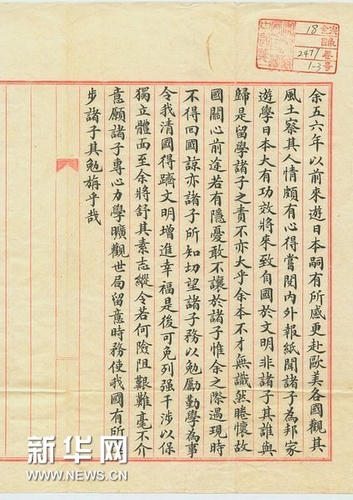 余五六年以前來遊日本嗣有所感更赴歐美各國觀其
風土察其人情頗有心得嘗閱內外報紙聞諸子為邦家
遊學日本大有功效將來致自國於文明非諸子其誰與
歸是留學諸子之責不亦大乎余本不才無識然睠懷故
國關心前途若有隱憂敢不讓於諸子惟余之際遇現時
不得回國諒亦諸子所知切望諸子務以勉勵勤學為事
令我清國得躋文明增進幸福是後可免列強干涉以保
獨立體面至余將舒其素志縱令若何險阻艱難毫不介
意願諸子專心力學曠觀世局留意時務使我國有所
步諸子其勉旃乎哉
18
2471
1-3
新华网
WWW.NEWS.CN